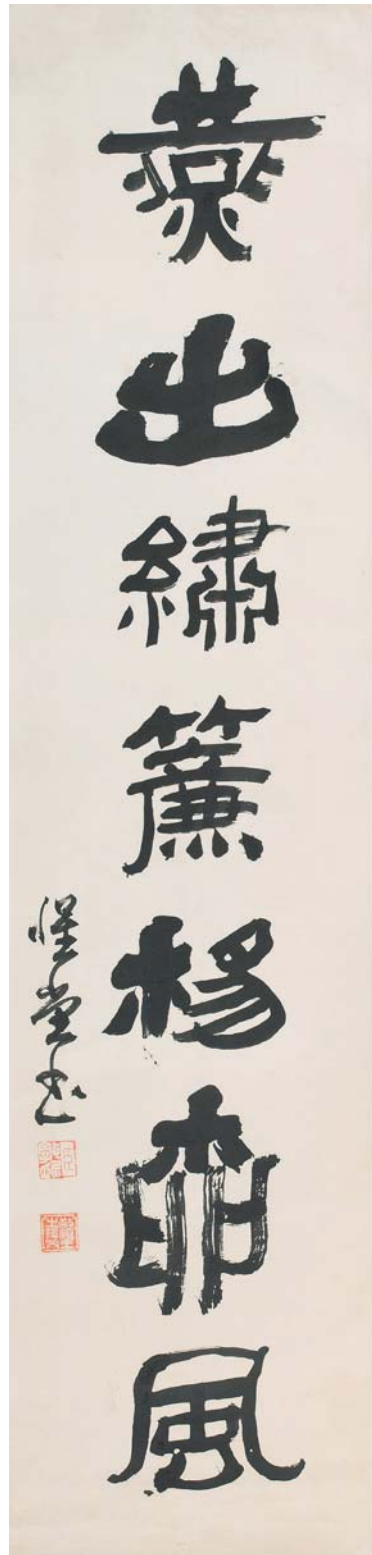 燕出繡簾楊柳風
惺堂書